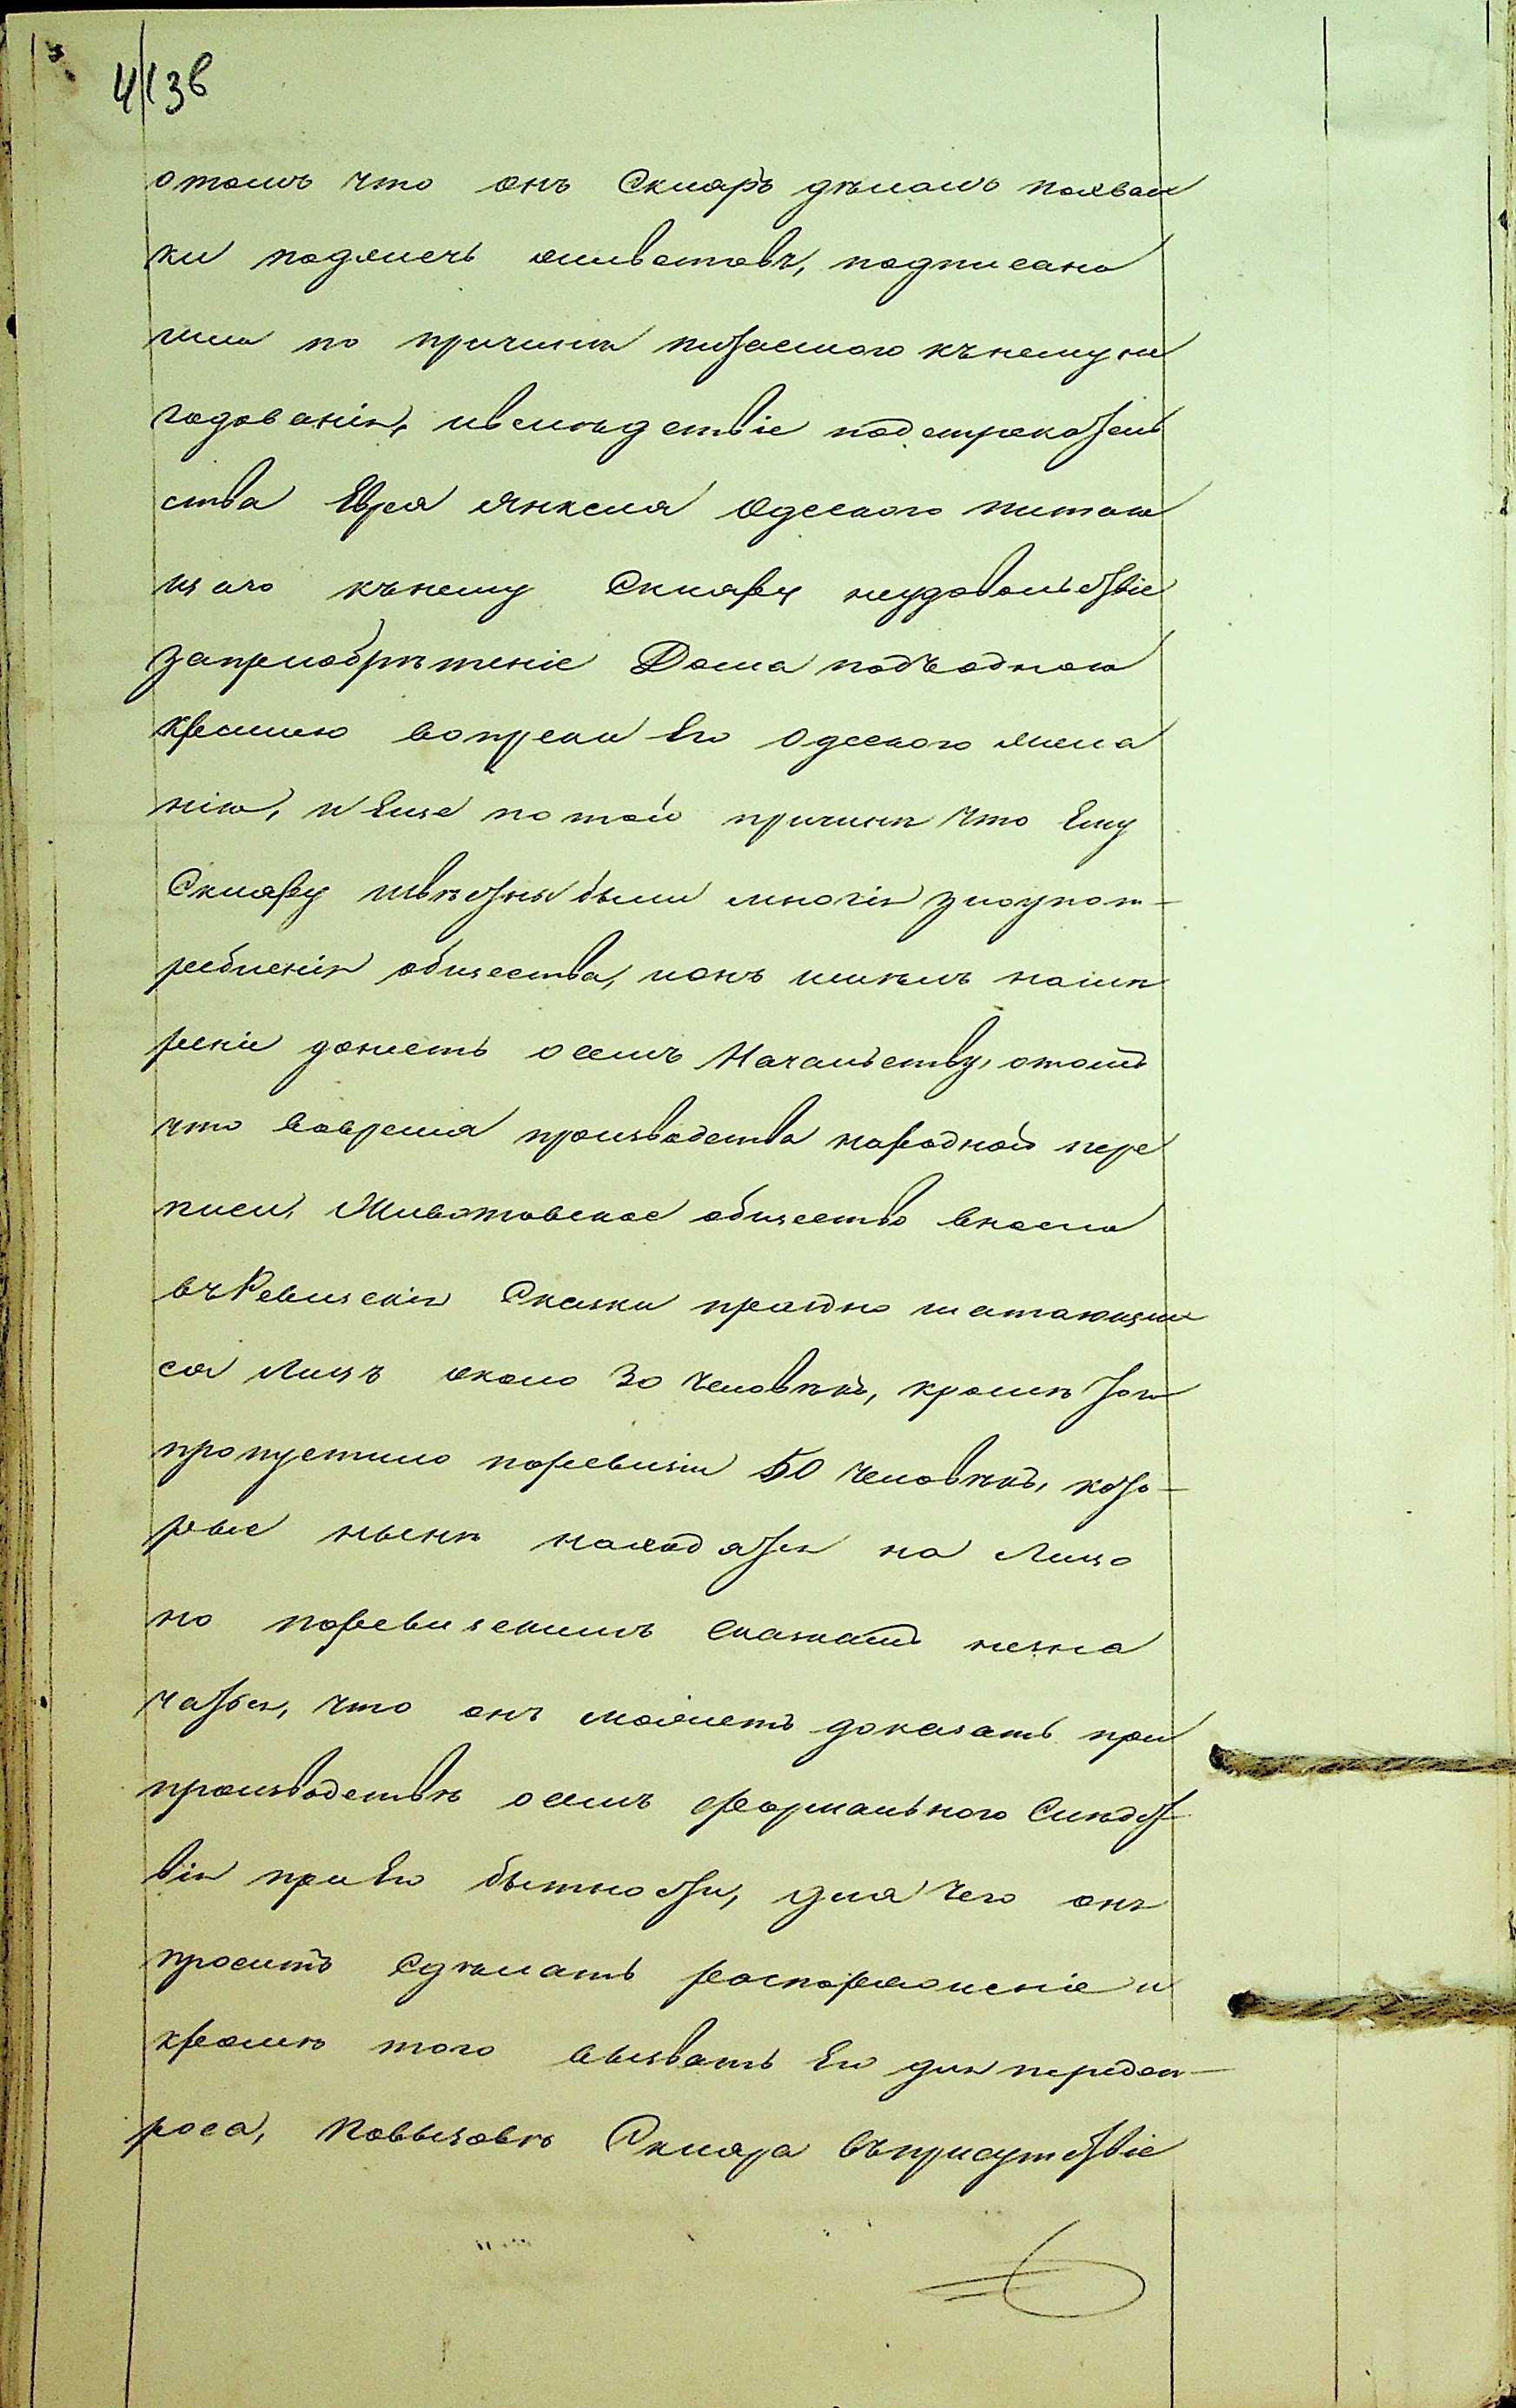 4136
отомъ что онъ Скляръ дѣлалъ похвал
ки поджечь Животовъ, подписано
ими по причинѣ питаемого къ нему не
годованія, и вслѣдствіе подстрекатель
ства Еврея Янкеля Одесского питаю
щаго къ нему Скляру неудовольствіе
за приобрѣтеніе Дома подъ одною
крышею вопреки Его Одесского жела
нію, и Еще по той причинѣ что Ему
Скляру извѣстны были многія злоупот-
ребленія общества, и онъ имѣлъ намѣ
реніе донесть о семъ Начальству, о томъ
что вовремя производства народной пере
писи, Животовское общество внесло
въ Ревизскія Сказки праздно шатающих
ся лицъ около 30 человѣкъ, кромѣ того
пропустило по ревизіи 50 человѣкъ, кото-
рые нынѣ находятся на лицо
но по ревизскимъ Сказкамъ не зна
чатся, что онъ можетъ доказать при
производствѣ о семъ формального Слѣдст
вія при Его бытности, для чего онъ
проситъ Сдѣлать распоряженіе и
кромѣ того вызвать Его для передоп-
роса, По вызовѣ Скляра въ присутствіе